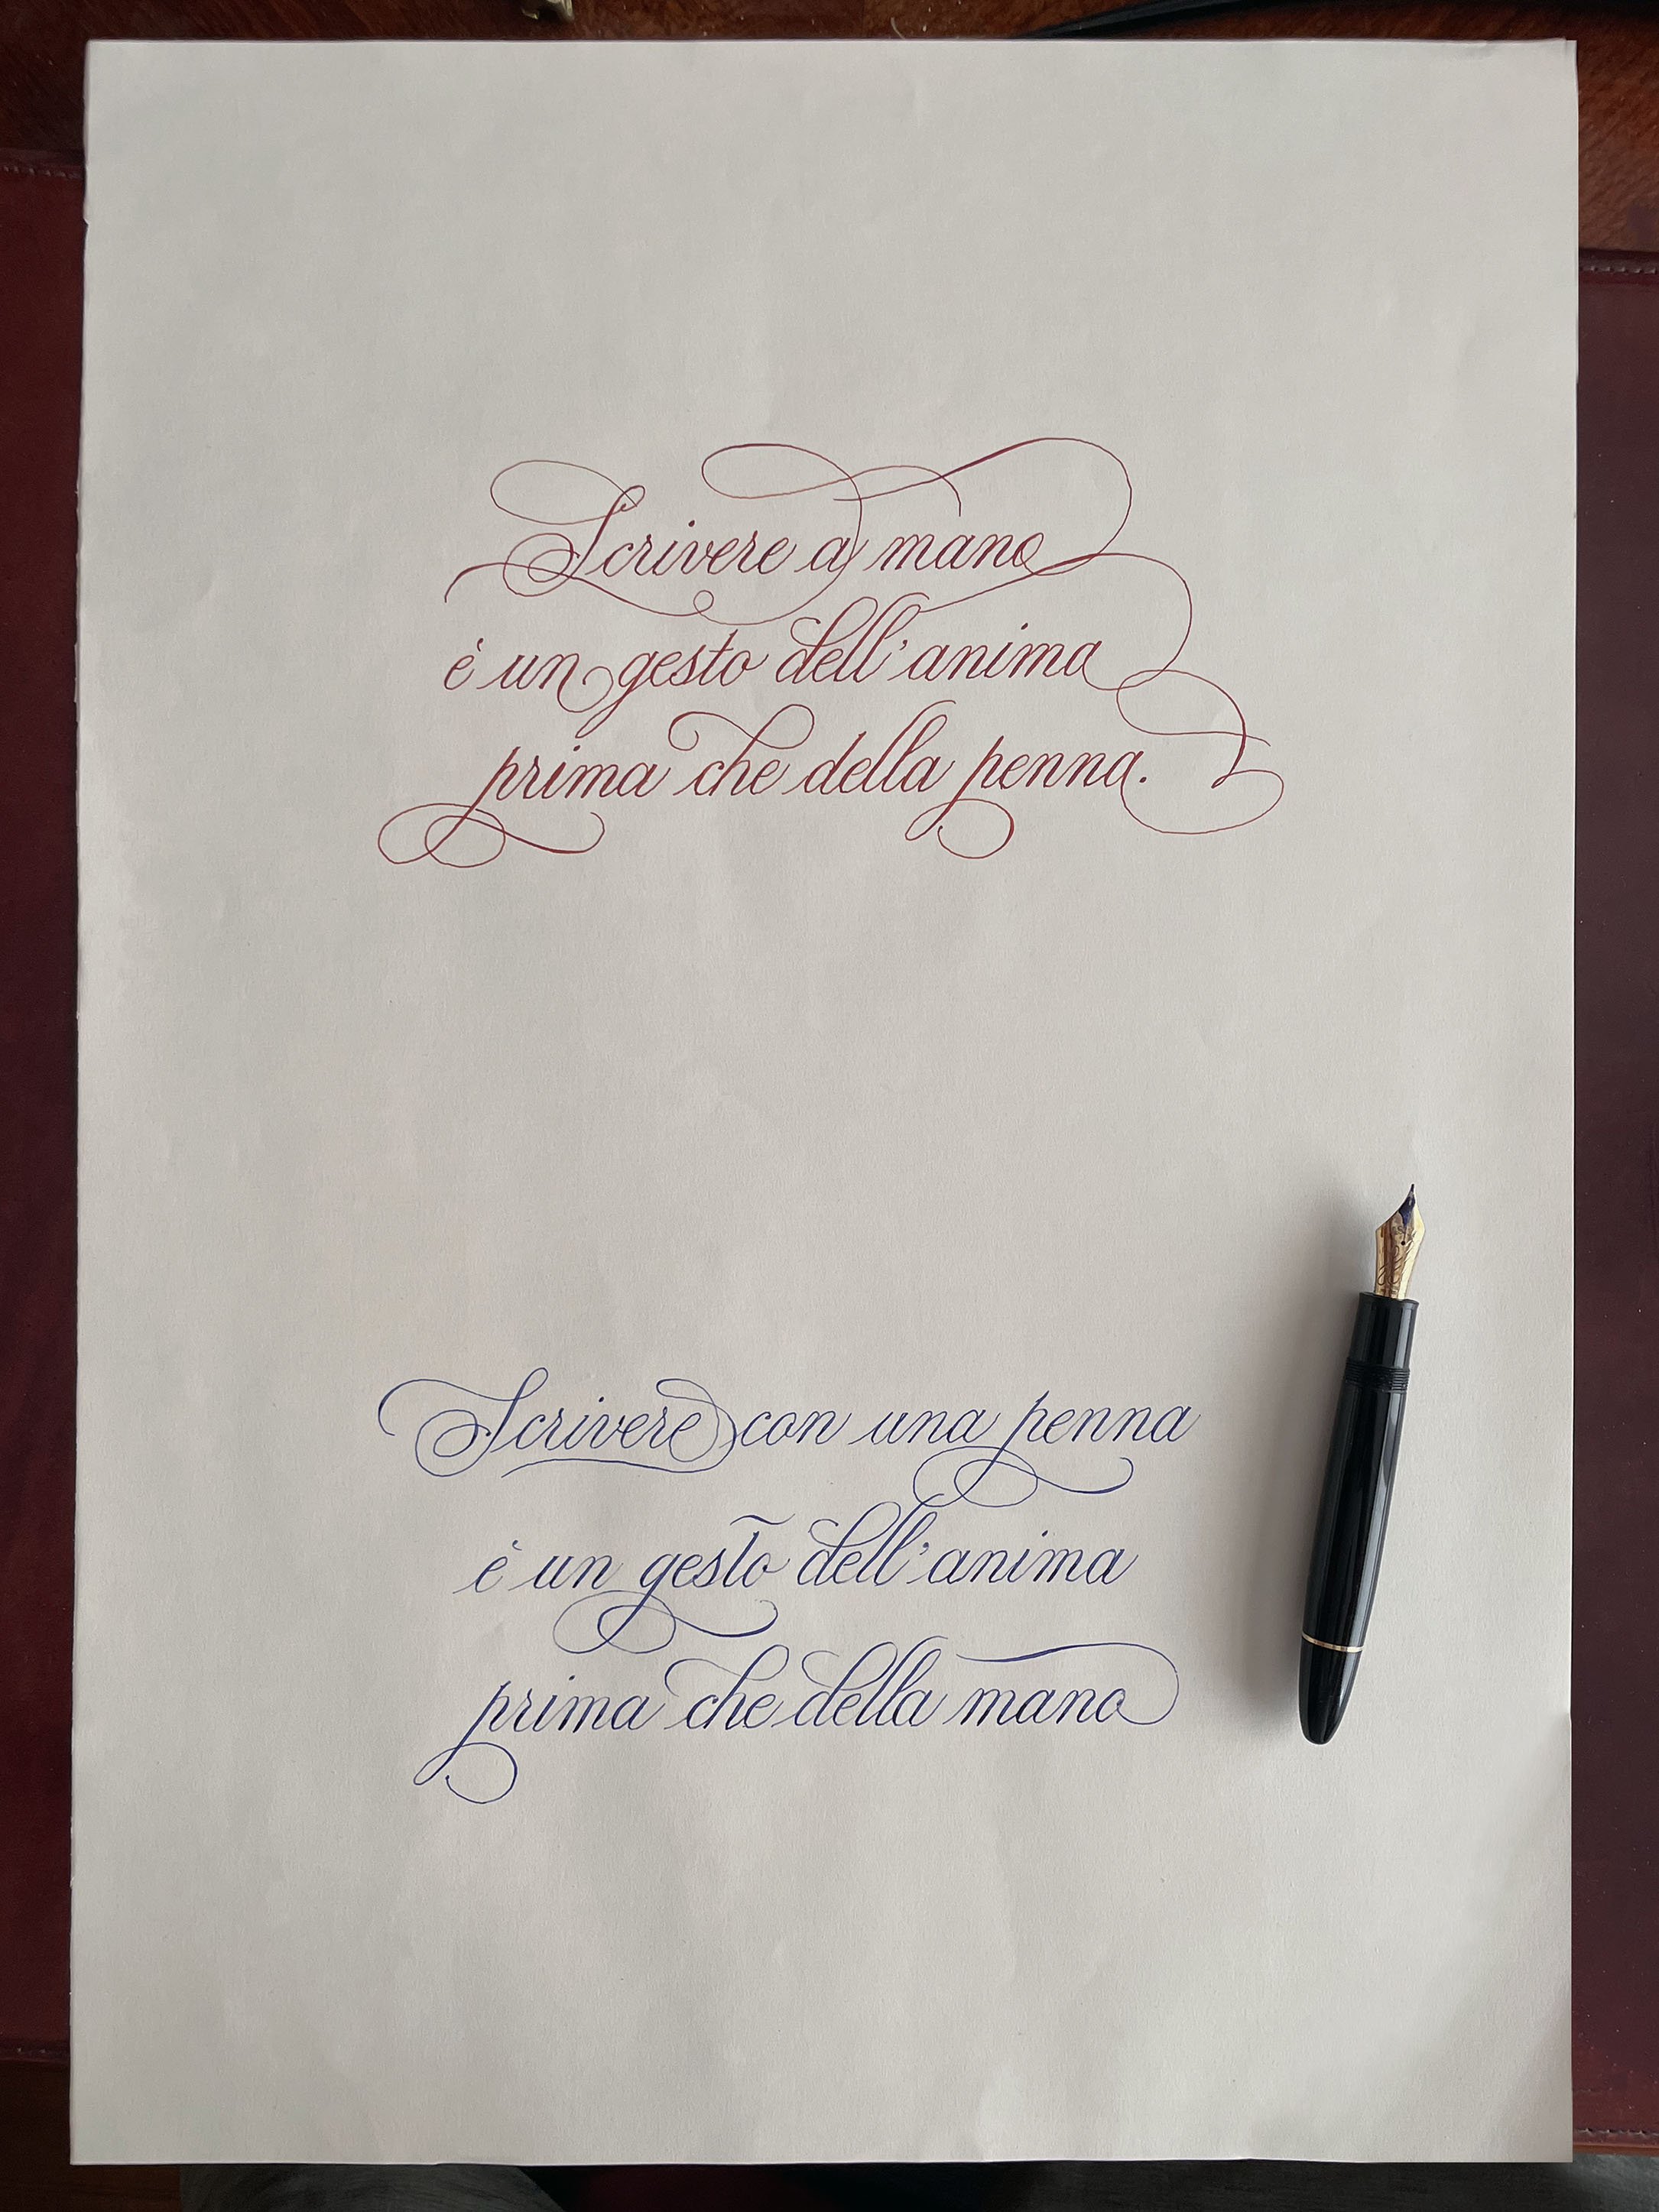 Scrivere a mano
è un gesto dell'anima
prima che della penna.
Scrivere con una penna
è un gesto dell'anima
prima che della mano